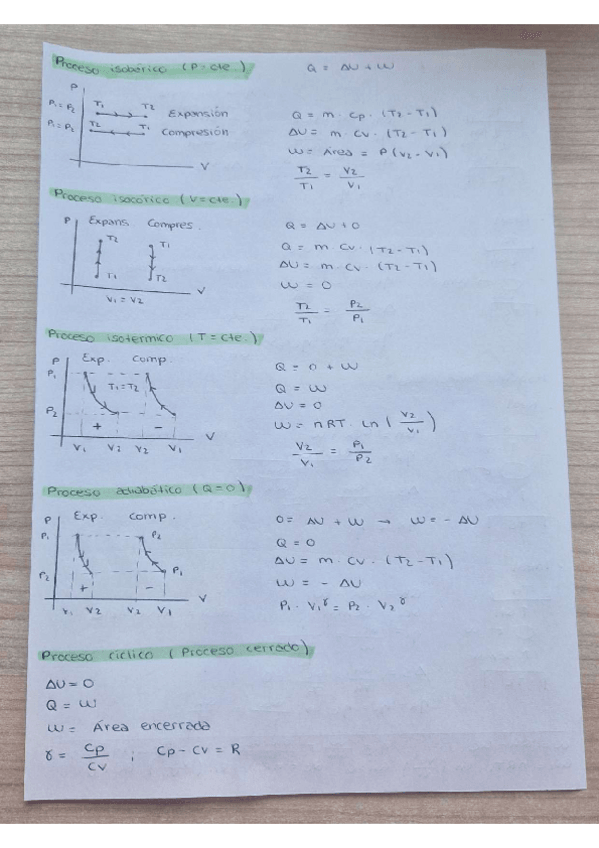 Proceso isobárico (P = cte.)
Q = ΔU + W
P
P1 = P2 T1 T2 Expansión
P1 = P2 T2 T1 Compresión
V
Q = m · Cp · (T2 - T1)
ΔU = m · Cv · (T2 - T1)
W = Área = P (V2 - V1)
T2/T1 = V2/V1
Proceso isocórico (V = cte.)
P Expans. Compres.
T2 T1
T1 T2
V
V1 = V2
Q = ΔU + 0
Q = m · Cv · (T2 - T1)
ΔU = m · Cv · (T2 - T1)
W = 0
T2/T1 = P2/P1
Proceso isotérmico (T = cte.)
P Exp. Comp.
P1
T1 = T2
P2
+ -
V
V1 V2 V2 V1
Q = 0 + W
Q = W
ΔU = 0
W = nRT · Ln (V2/V1)
V2/V1 = P1/P2
Proceso adiabático (Q = 0)
P Exp. Comp.
P1 P2
P2 P1
+ -
V
V1 V2 V2 V1
0 = ΔU + W → W = - ΔU
Q = 0
ΔU = m · Cv · (T2 - T1)
W = - ΔU
P1 · V1^γ = P2 · V2^γ
Proceso cíclico (Proceso cerrado)
ΔU = 0
Q = W
W = Área encerrada
γ = Cp/Cv ; Cp - Cv = R